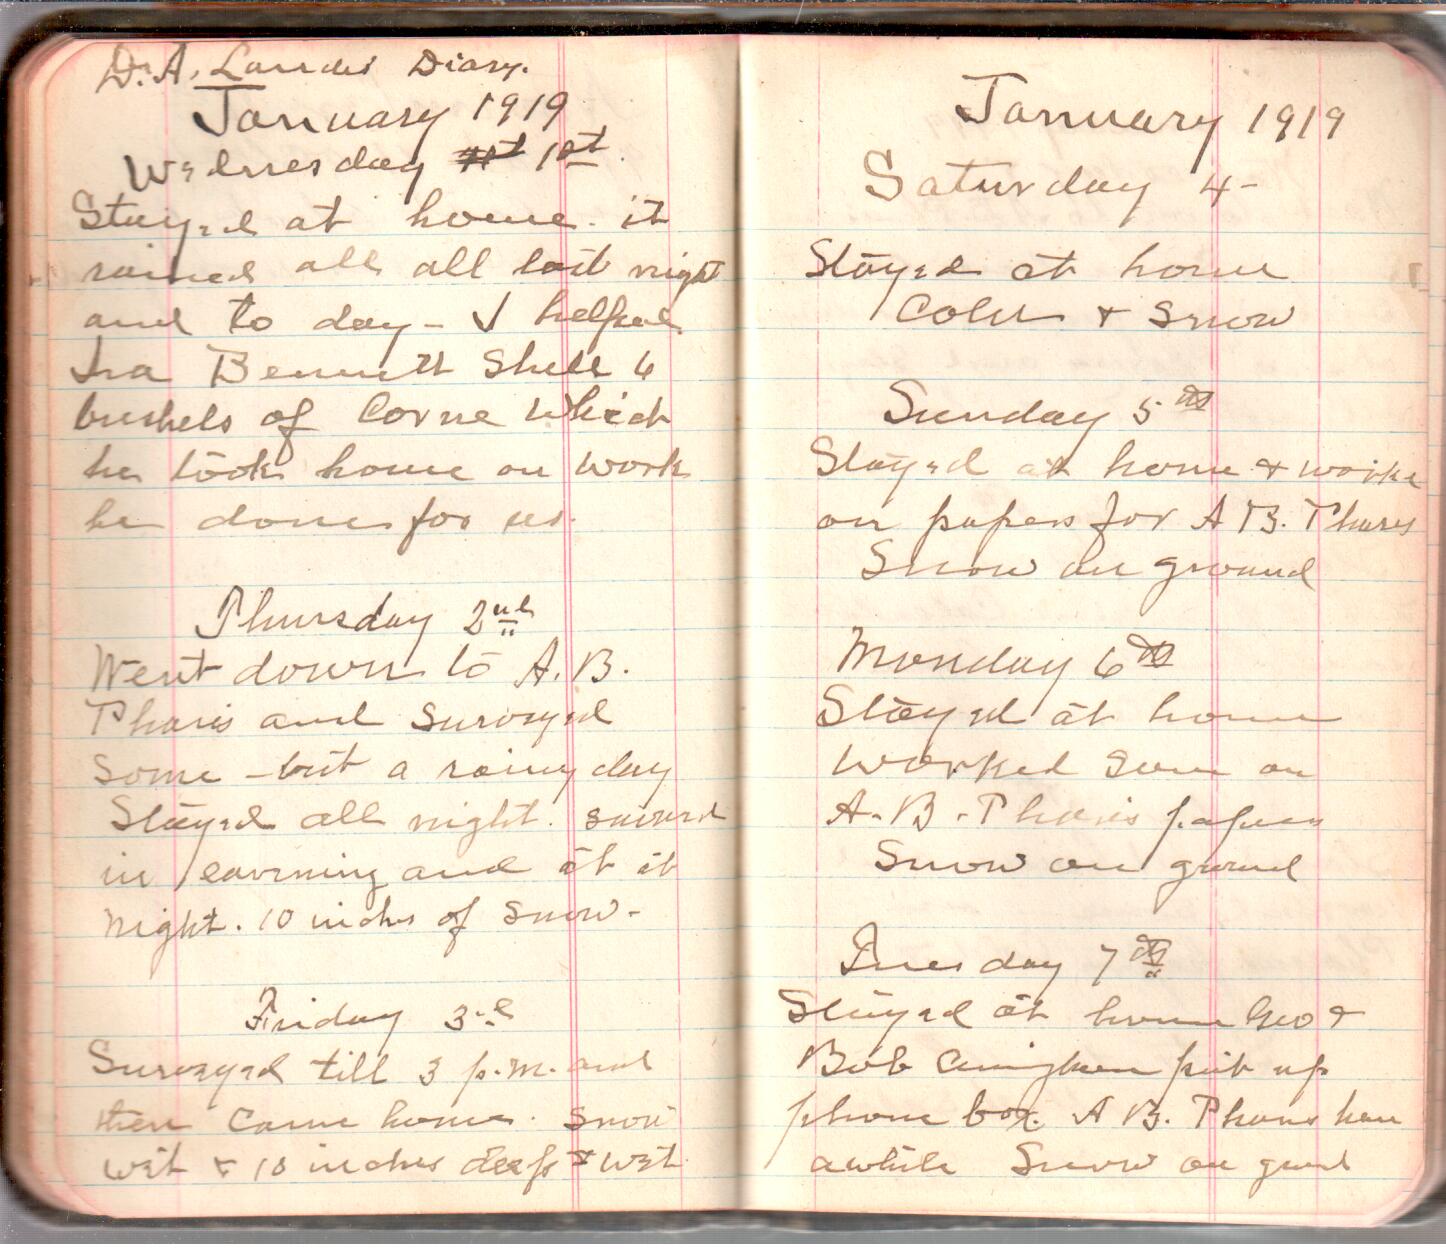 D. A. Landis Diary.
January 1919
Wednesday 1st
Stayed at home. it
rained all all last night
and to day - I helped
Ira Bennett Shell 6
bushels of Corne which
he took home on work
he done for us.
Thursday 2nd
Went down to A. B.
Pharis and Surveyed
some - but a rainy day
Stayed all night. snowed
in earning and at it
night. 10 inches of snow -
Friday 3rd
Surveyed till 3 p.m. and
then came home. Snow
wet & 10 inches deep & wet.
January 1919
Saturday 4 -
Stayed at home
Cold & Snow
Sunday 5th
Stayed at home & worke
on papers for A B. Phares
Snow on ground
Monday 6th
Stayed at home
worked some on
A. B. Pharis papers
Snow on ground
Tuesday 7th
Stayed at home Geo &
Bob put up
phone box. A B. Pharis here
awhile Snow on ground